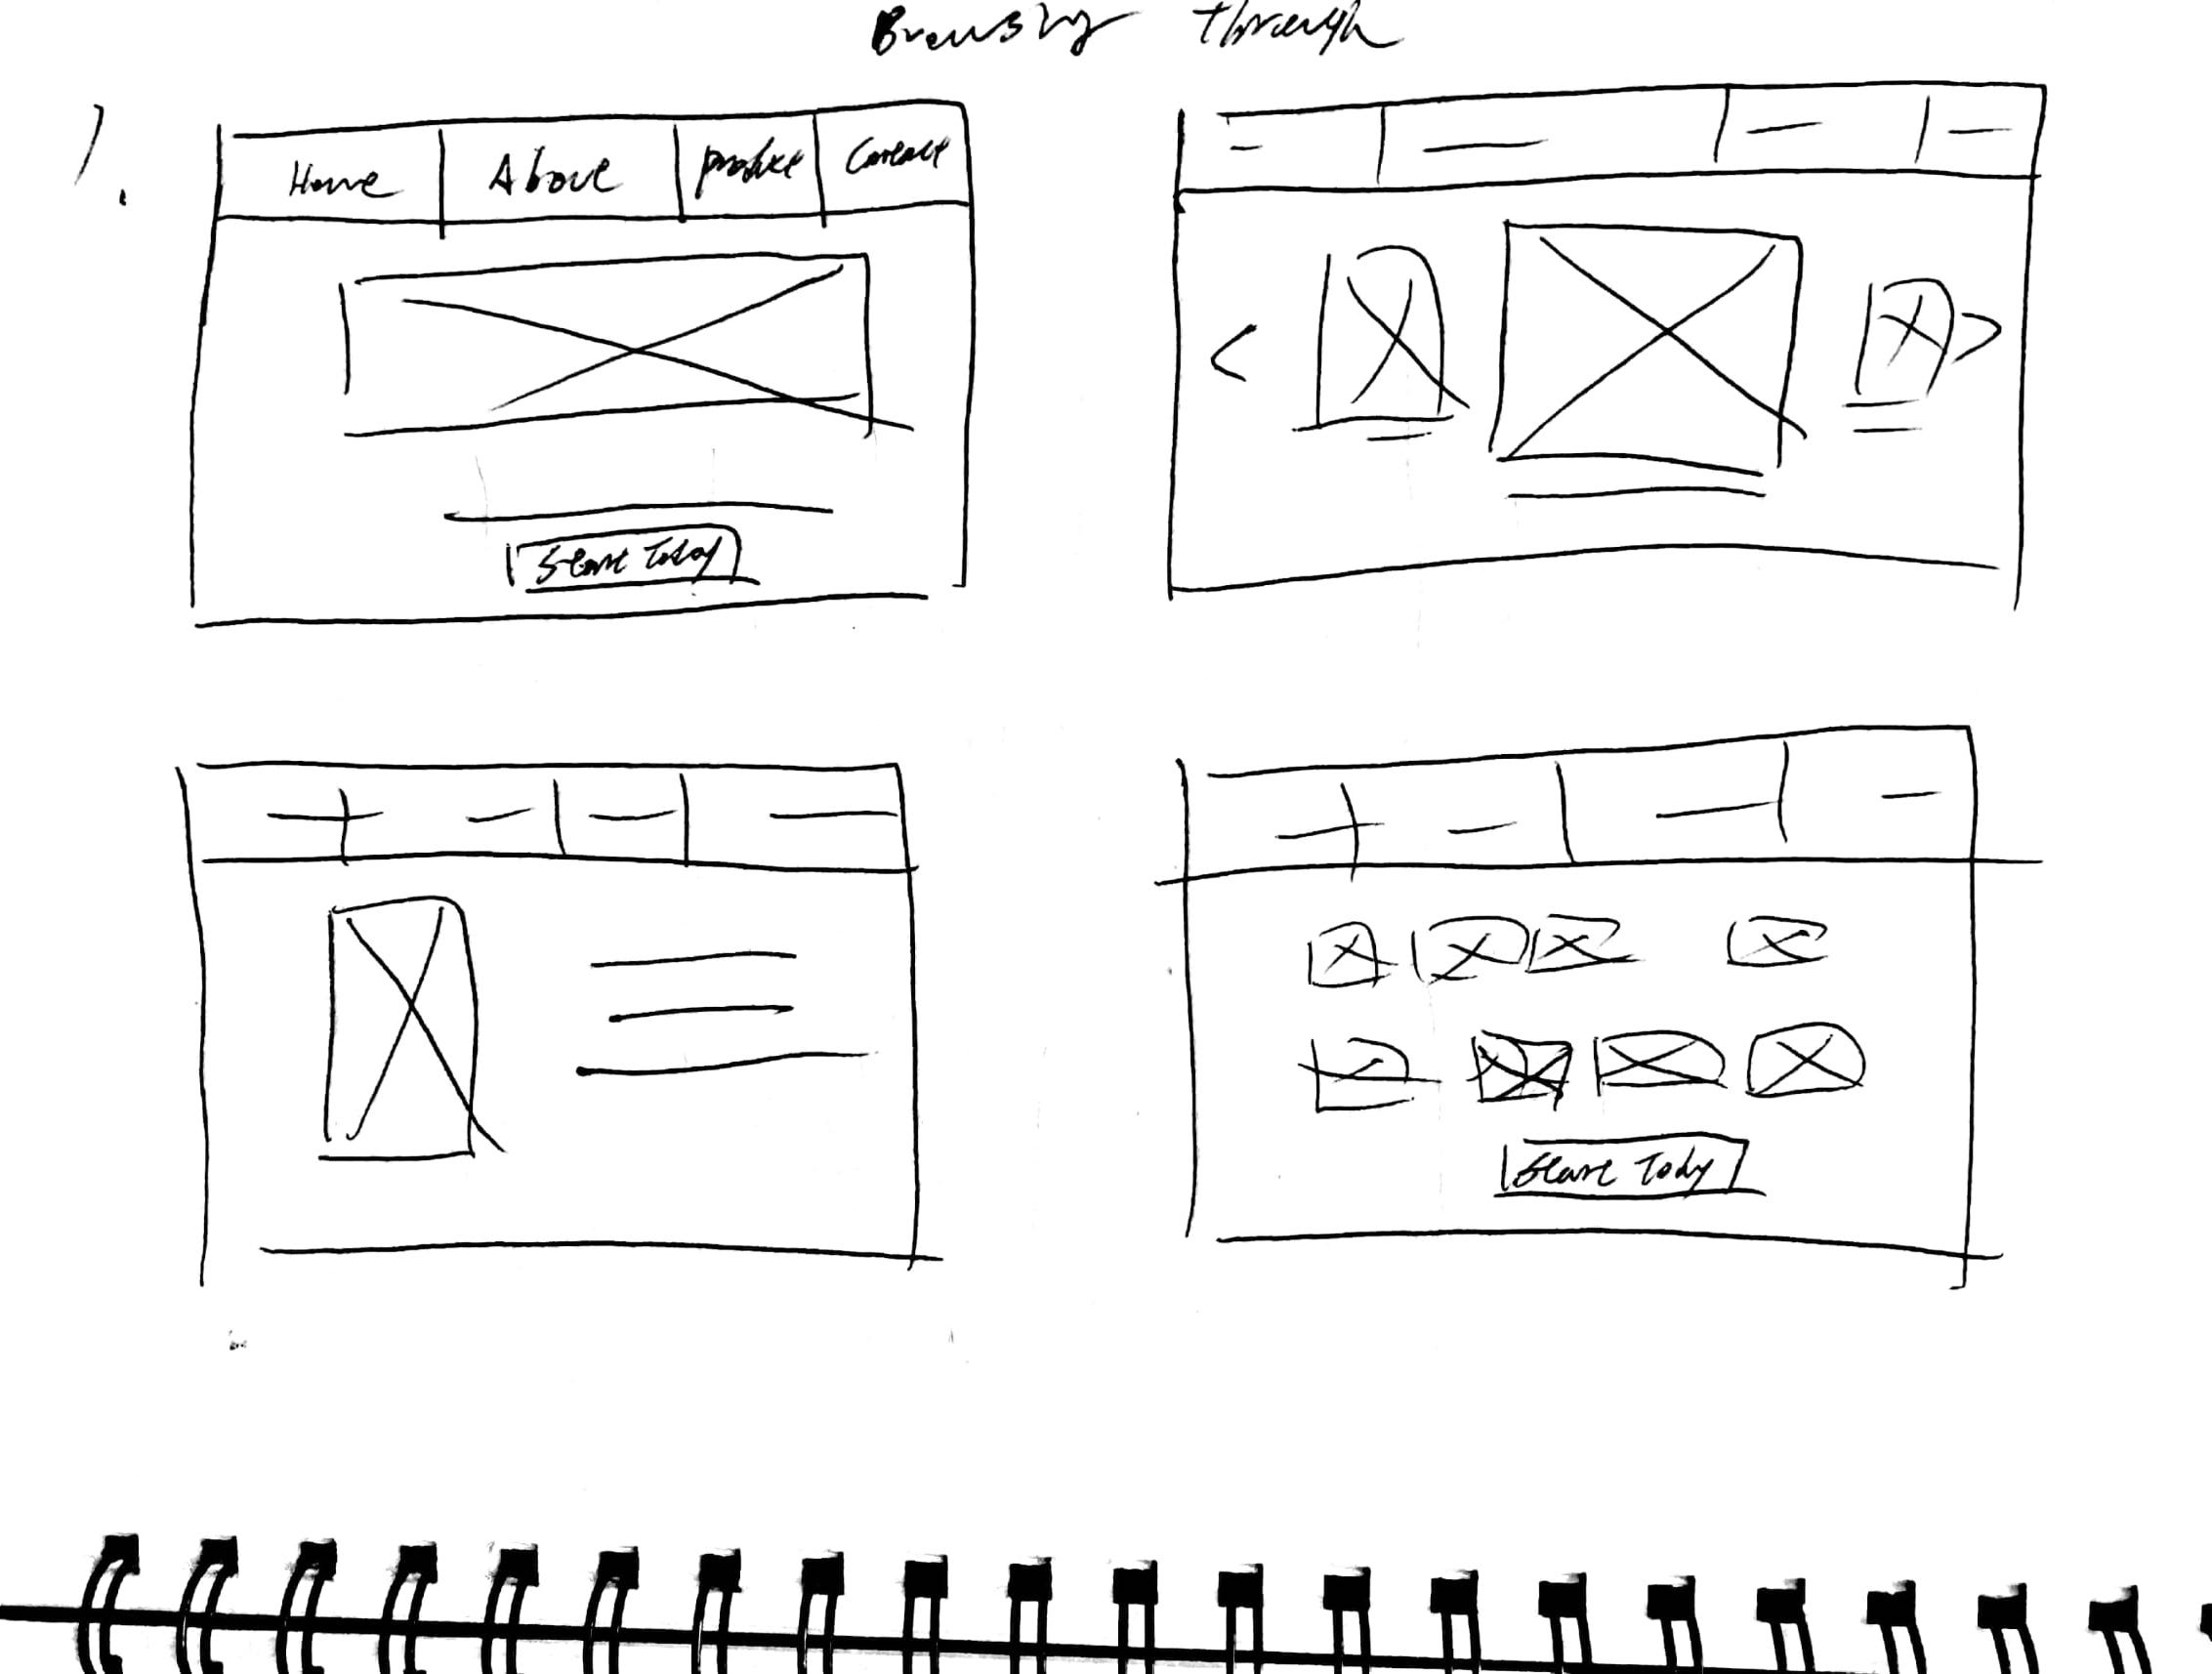 Browsing through
1.
Home About product Contact
Start Today
Start Today